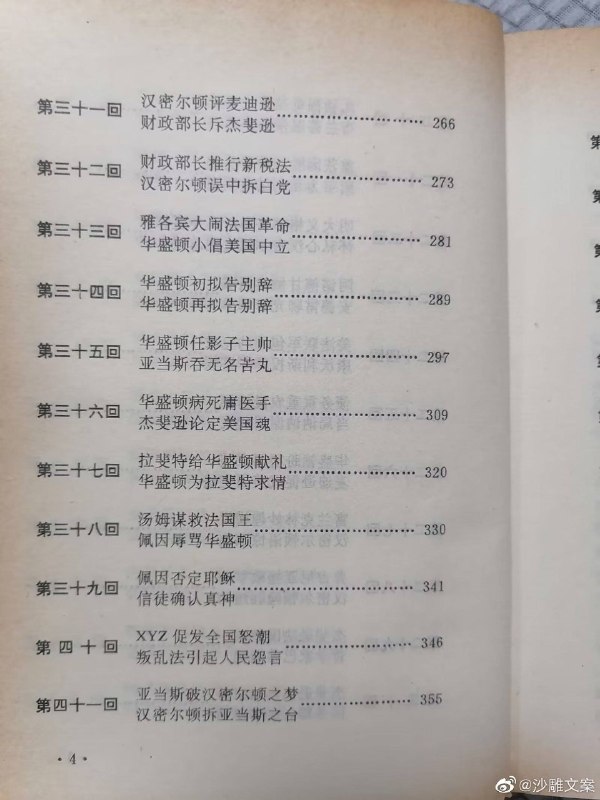 第三十一回 汉密尔顿评麦迪逊
财政部长斥杰斐逊 266
第三十二回 财政部长推行新税法
汉密尔顿误中拆白党 273
第三十三回 雅各宾大闹法国革命
华盛顿小倡美国中立 281
第三十四回 华盛顿初拟告别辞
华盛顿再拟告别辞 289
第三十五回 华盛顿任影子主帅
亚当斯吞无名苦丸 297
第三十六回 华盛顿病死庸医手
杰斐逊论定美国魂 309
第三十七回 拉斐特给华盛顿献礼
华盛顿为拉斐特求情 320
第三十八回 汤姆谋救法国王
佩因辱骂华盛顿 330
第三十九回 佩因否定耶稣
信徒确认真神 341
第四十回 XYZ促发全国怒潮
叛乱法引起人民怨言 346
第四十一回 亚当斯破汉密尔顿之梦
汉密尔顿拆亚当斯之台 355
·4·
@沙雕文案